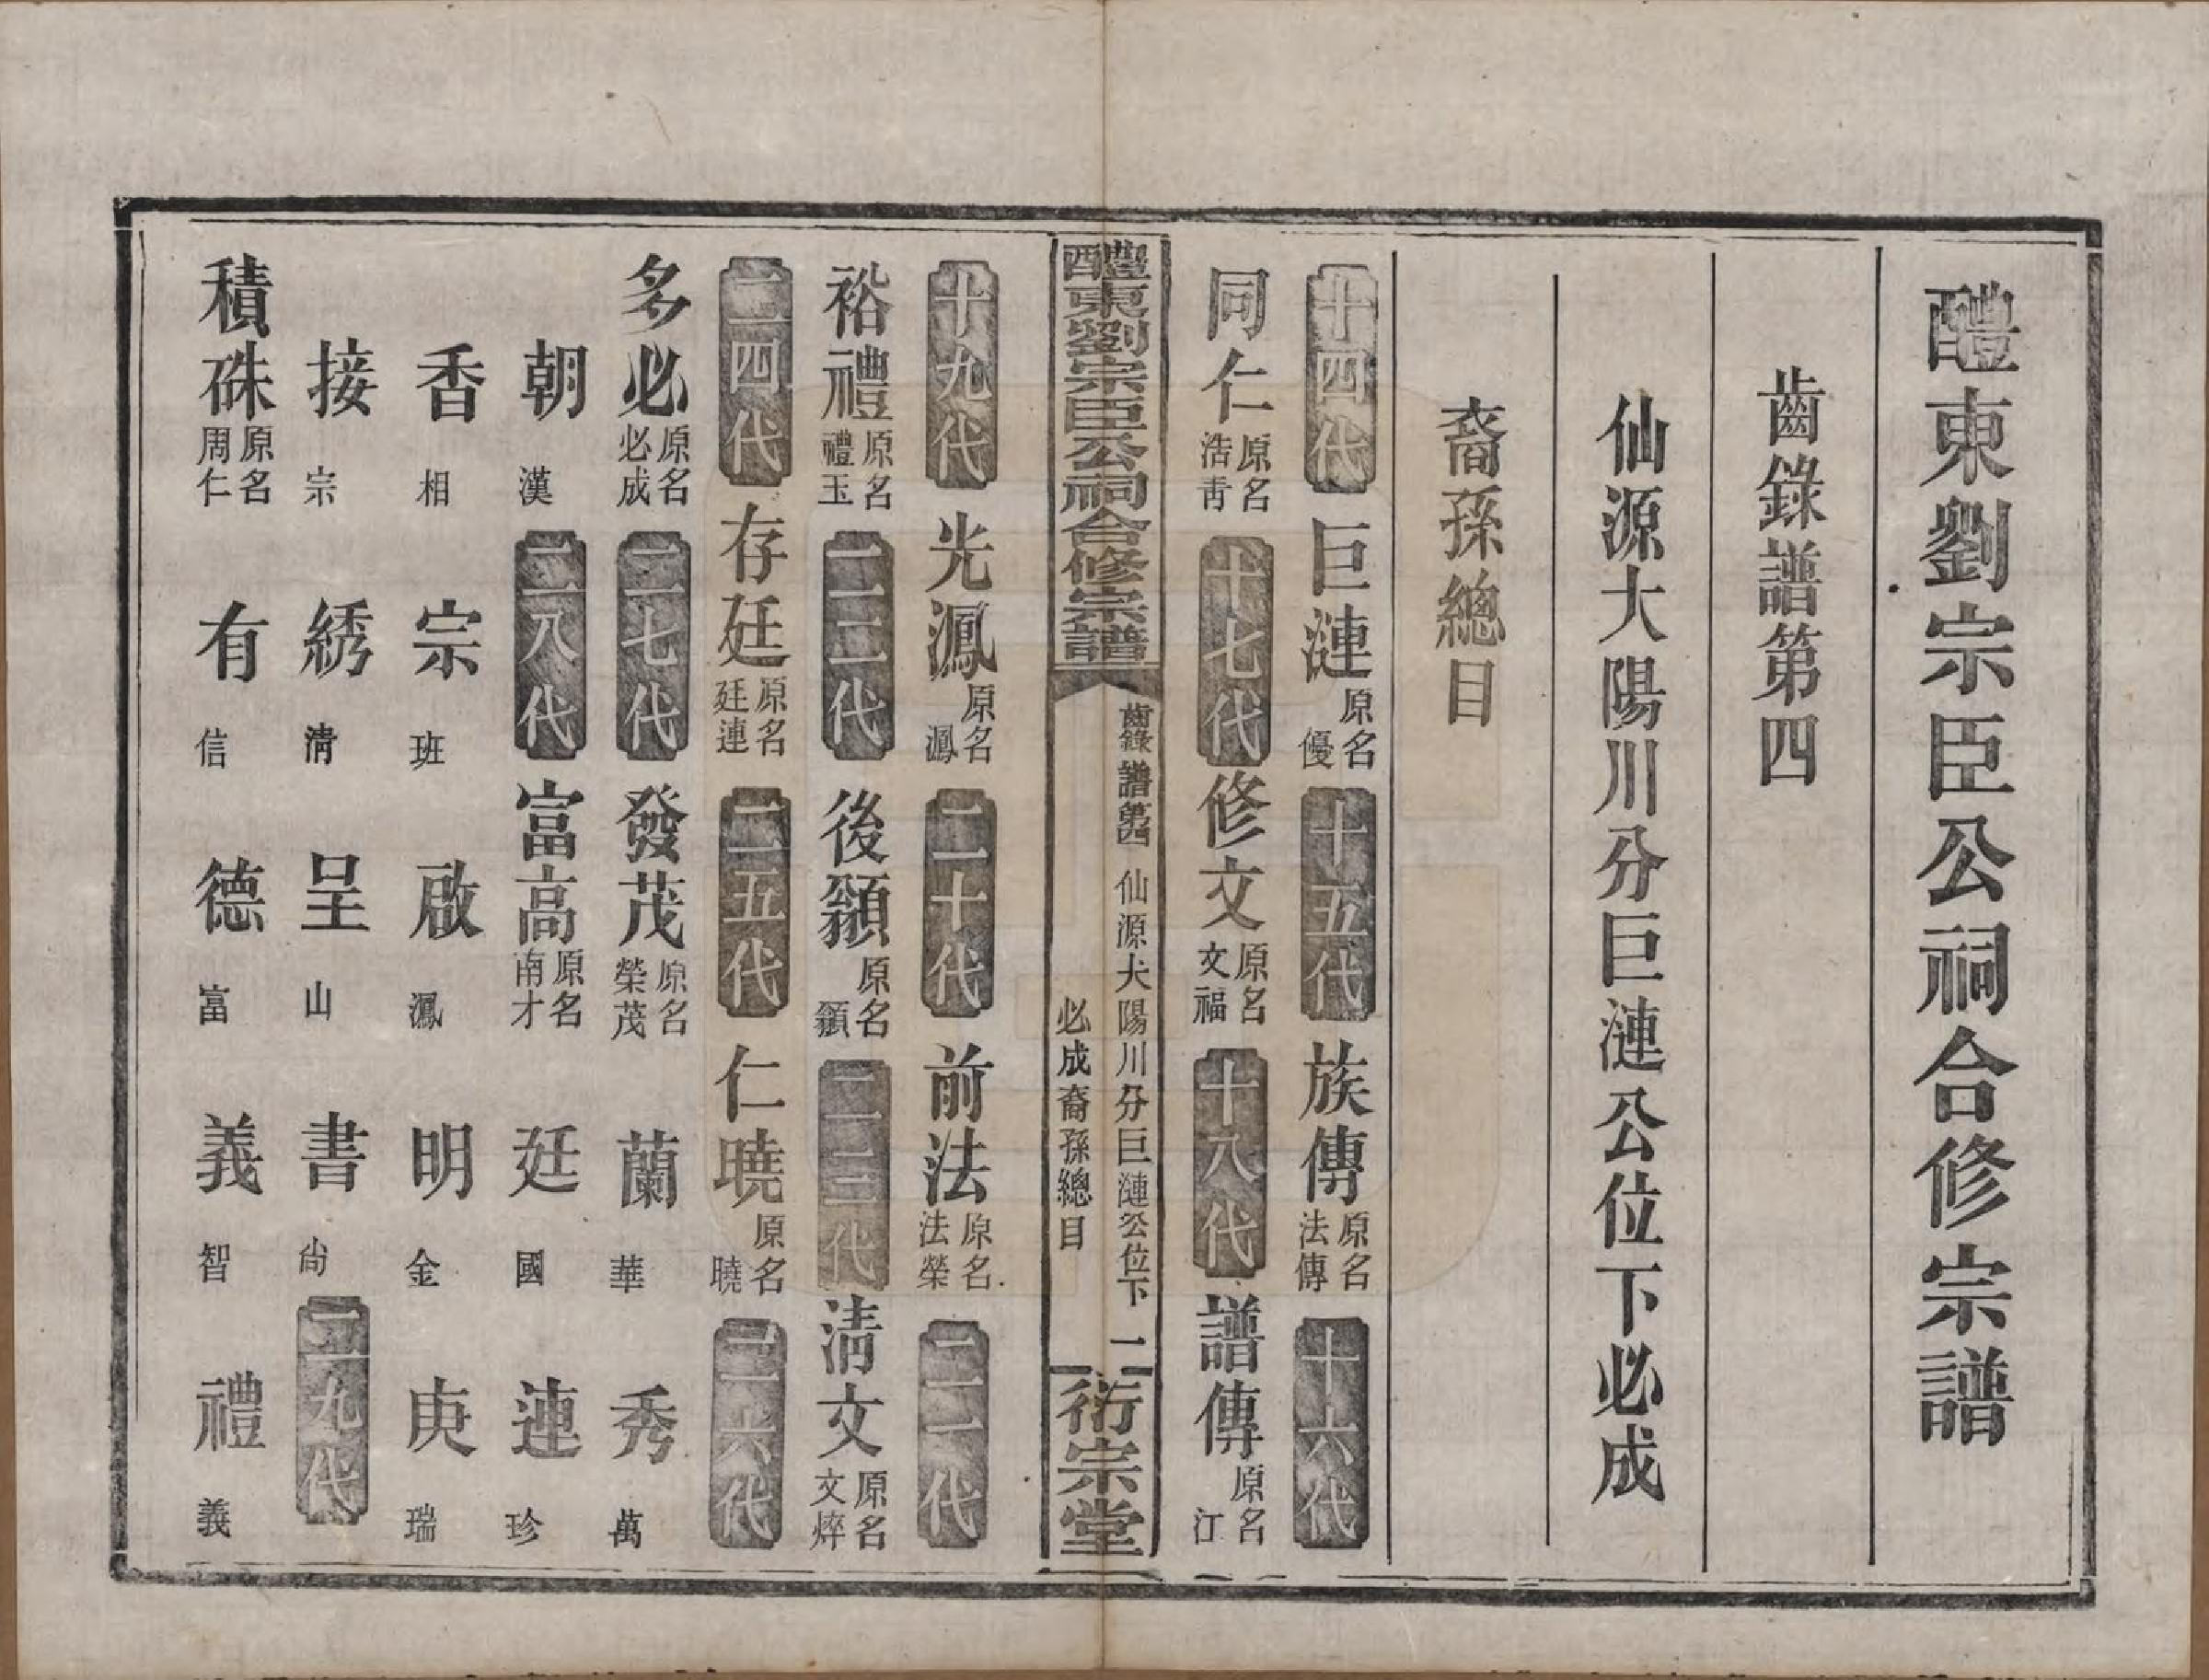 醴東劉宗臣公祠合修宗譜
齒錄譜第四
仙源大陽川分巨漣公位下必成
裔孫總目
十四代 巨漣 原名優 十五代 族傳 原名法傳 十六代
同仁 原名浩靑 十七代 修文 原名文福 十八代 譜傳 原名江
醴東劉宗臣公祠合修宗譜 齒錄譜第四 仙源大陽川分巨漣公位下 必成裔孫總目 二 衍宗堂
十九代 光鳳 原名鳳 二十代 前法 原名法榮 二一代
裕禮 原名禮玉 二二代 後顡 原名顡 二三代 清文 原名文焠
二四代 存廷 原名廷連 二五代 仁曉 原名曉 二六代
多必 原名必成 二七代 發茂 原名榮茂 蘭 華 秀 萬
朝 漢 二八代 富高 原名南才 廷 國 連 珍
香 相 宗 班 啟 鳳 明 金 庚 瑞
接 宗 綉 清 呈 山 書 尚 二九代
積硃 原名周仁 有 信 德 富 義 智 禮 義